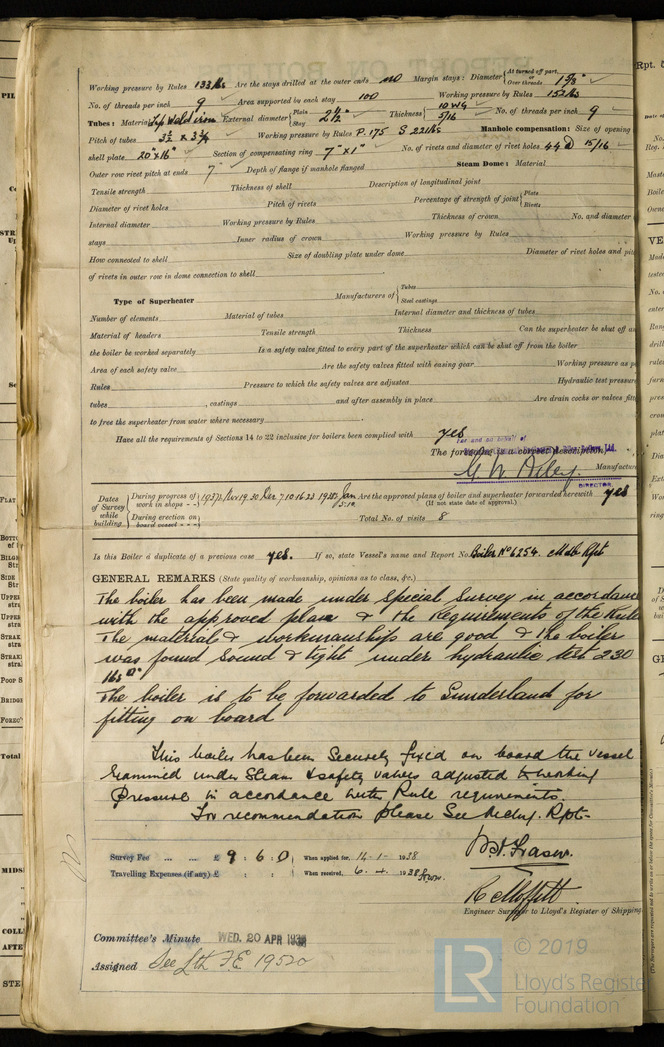 Working pressure by Rules 133 lbs Are the stays drilled at the outer ends no Margin stays: Diameter { At turned off part, or Over threads 1 5/8" 
No. of threads per inch 9 Area supported by each stay 100 Working pressure by Rules 152 lbs
Tubes: Material Lap weld iron External diameter { Plain Stay 2 1/2" Thickness { 10 WG 5/16 No. of threads per inch 9
Pitch of tubes 3 1/2 x 3 3/4 Working pressure by Rules P. 175 S 221 lbs Manhole compensation: Size of opening
shell plate 20" x 16" Section of compensating ring 7" x 1" No. of rivets and diameter of rivet holes 44 15/16
Outer row rivet pitch at ends 7" Depth of flange if manhole flanged Steam Dome: Material
Tensile strength Thickness of shell Description of longitudinal joint
Diameter of rivet holes Pitch of rivets Percentage of strength of joint { Plate Rivets
Internal diameter Working pressure by Rules Thickness of crown No. and diameter
stays Inner radius of crown Working pressure by Rules
How connected to shell Size of doubling plate under dome Diameter of rivet holes and pit
of rivets in outer row in dome connection to shell
Type of Superheater Manufacturers of { Tubes Steel castings
Number of elements Material of tubes Internal diameter and thickness of tubes
Material of headers Tensile strength Thickness Can the superheater be shut off a
the boiler be worked separately Is a safety valve fitted to every part of the superheater which can be shut off from the boiler
Area of each safety valve Are the safety valves fitted with easing gear Working pressure as p
Rules Pressure to which the safety valves are adjusted Hydraulic test pressure
tubes , castings and after assembly in place Are drain cocks or valves fitt
to free the superheater from water where necessary
Have all the requirements of Sections 14 to 22 inclusive for boilers been complied with yes
For and on behalf of
The foregoing is a correct description,
Manufactur
DIRECTOR.
Dates of Survey while building { During progress of work in shops - - { 1937. Nov 19. 30 Dec 7. 10. 16. 23 1938. Jan 5. 12 Are the approved plans of boiler and superheater forwarded herewith yes
(If not state date of approval.)
During erection on board vessel - - - Total No. of visits 8
Is this Boiler a duplicate of a previous case yes. If so, state Vessel's name and Report No. Boiler No 6254. Rpt
GENERAL REMARKS (State quality of workmanship, opinions as to class, &c.)
The boiler has been made under special survey in accordance
with the approved plan & the Requirements of the Rules
The material & workmanship are good & the boiler
was found sound & tight under hydraulic test 230
lbs □"
The boiler is to be forwarded to Sunderland for
fitting on board
This boiler has been securely fixed on board the vessel
examined under steam & safety valves adjusted to working
pressure in accordance with Rule requirements.
For recommendation please see Rpt-
Survey Fee ... ... £ 9 : 6 : 0 When applied for, 14-1-1938
Travelling Expenses (if any) £ : : When received, 6-4-1938
Engineer Surveyor to Lloyd's Register of Shipping
Committee's Minute WED. 20 APR 1938
Assigned See Lth F.E 19520
© 2019
LR
Lloyd's Register
Foundation